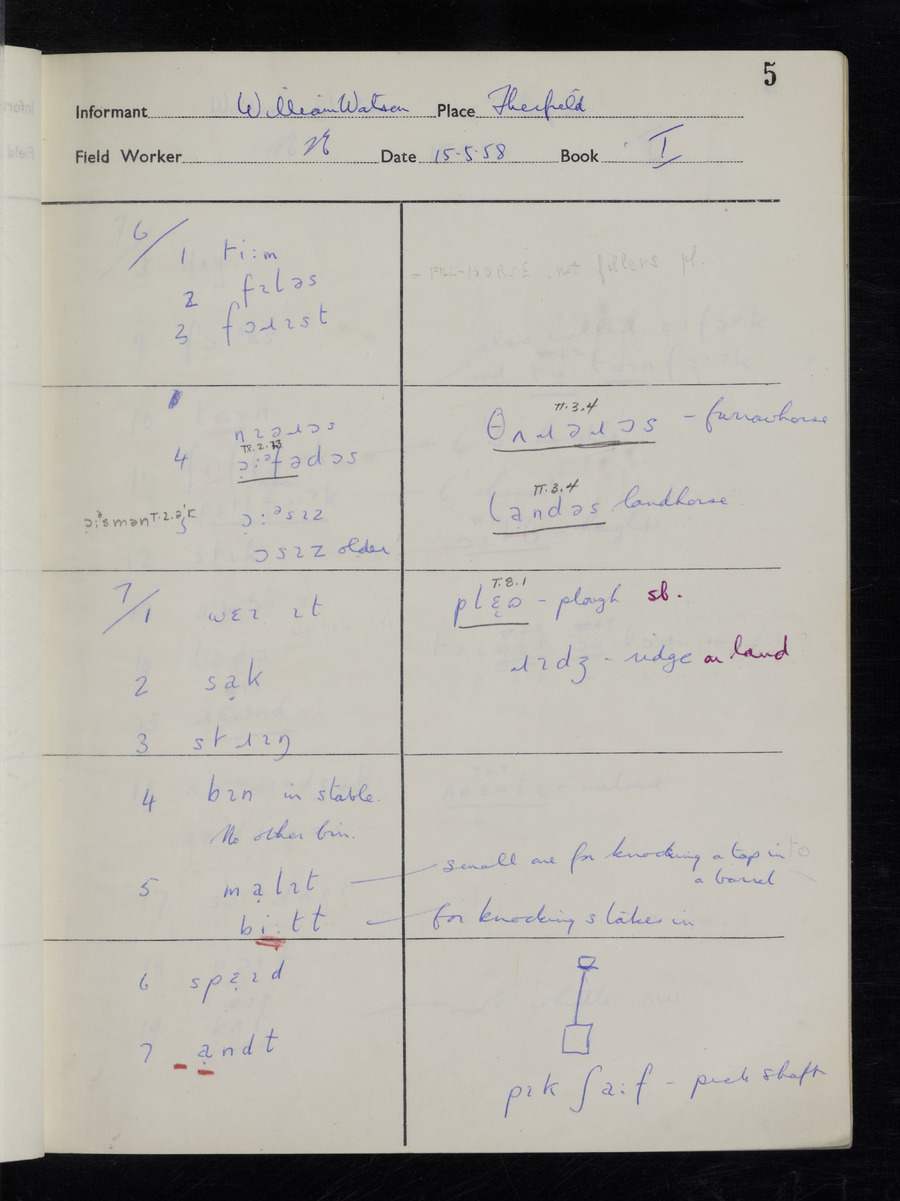 5
Informant William Watson Place Therfield
Field Worker Date 15·5·58 Book I
6/
1 ti:m
2 fɪləs
3 fɔɹɪst
- FILL-HORSE, not fillers pl.
nɪəɹɔs
4 IX.2.13
ɔ̣:ᵊfədɔs
ɔ:ᵊsɪz
ɔsɪz older
II.3.4
θʌɹəɹɔs - furrowhorse
II.3.4
lạndəs landhorse
7/
1 wɛɪ ɪt
2 sạk
3 stɹɪŋ
T.8.1
plɛ̣ɷ - plough sb.
ɹɪdʒ - ridge on land
4 bɪn in stable.
No other bin.
5 mạlɪt
small one for knocking a tap into
a barrel
bi:tt
for knocking stakes in
6 spɛ̣ɪd
7 ạndt
pɪk ʃa:f - pick shaft